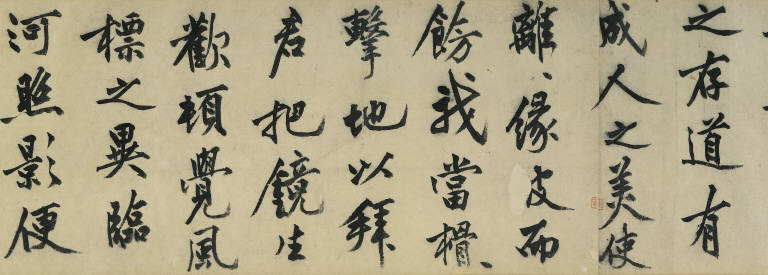 之存道有
成人之美使
離、緣皮而
餝我當
擊地以拜
君把鏡生
歡頓覺風
標之異臨
河照影便